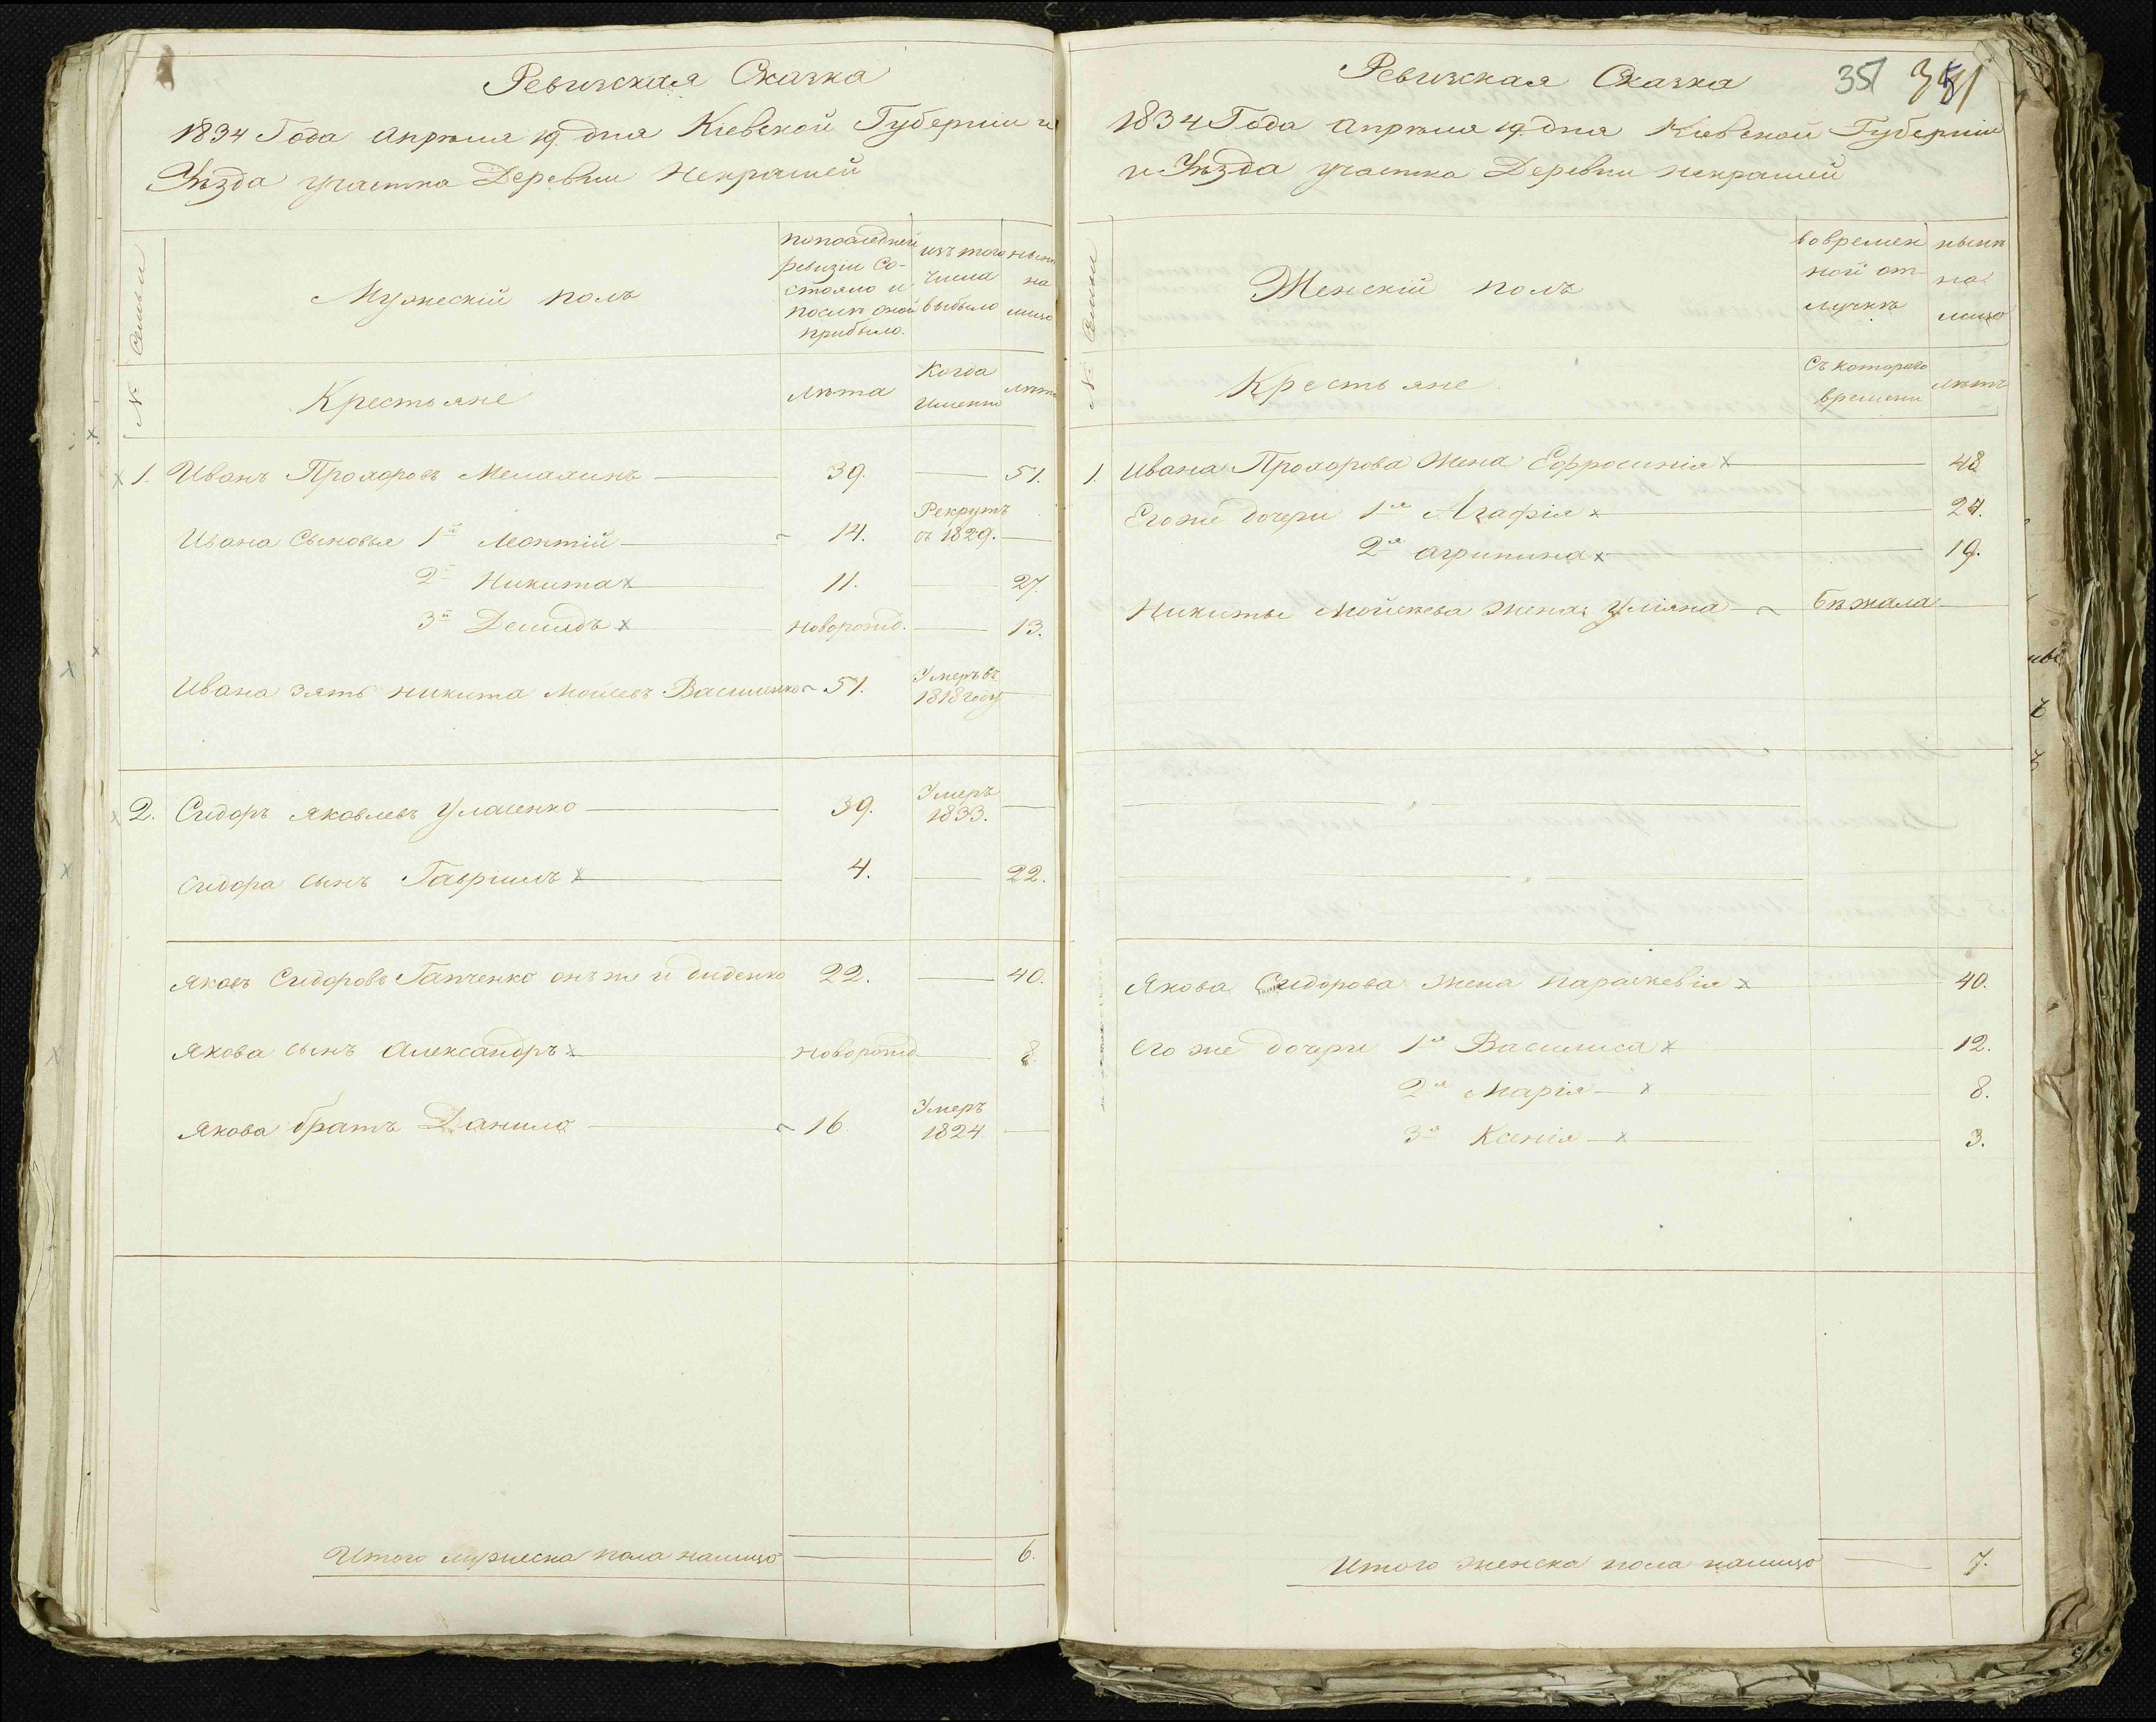 Ревизская Сказка
1834 Года Апрѣля 19 дня Кіевской Губерніи и
Уѣзда участка Деревни Некрашей
№ Семьи
Мужескій полъ
попоследней ревизіи Состояло и послѣ оной прибыло.
изъ того числа выбыло
нынѣ на лицо
Крестьяне
Лѣта
Когда Именно
лѣта
1. Иванъ Прохоровъ 39. 51.
Ивана Сыновья 1й Леонтій 14. Рекрутъ въ 1829.
2й Никита 11. 27.
3й Демидъ новорожд. 13.
Ивана зять никита Мойсеевъ Василенко 51. Умеръ въ 1818 году
2. Сидоръ яковлевъ Уласенко 39. Умеръ 1833.
Сидора сынъ Гавріилъ 4. 22.
яковъ Сидоровъ Гапченко онъ же и диденко 22. 40.
якова сынъ Александръ новорожд 8.
якова братъ Данило 16. Умеръ 1824
Итого мужеска пола налицо 6.
Ревизская Сказка
351
351
1834 Года апрѣля 19 дня Кіевской Губерніи
и Уѣзда участка Деревни некрашей
№ Семьи
Женскій полъ
вовременной отлучкѣ
нынѣ на лицо
Крестьяне
Съ которого времени
лѣтъ
1. Ивана Прохорова Жена Ефросинія 48
Его же дочери 1я Агафія 24.
2я агрипина 19.
Никиты Мойсеева жена Уліяна Бѣжала
Якова Сидорова жена параскевія 40.
Его же дочери 1я Василиса 12.
2я Марія 8.
3я Ксенія 3.
Итого женска пола налицо 7.